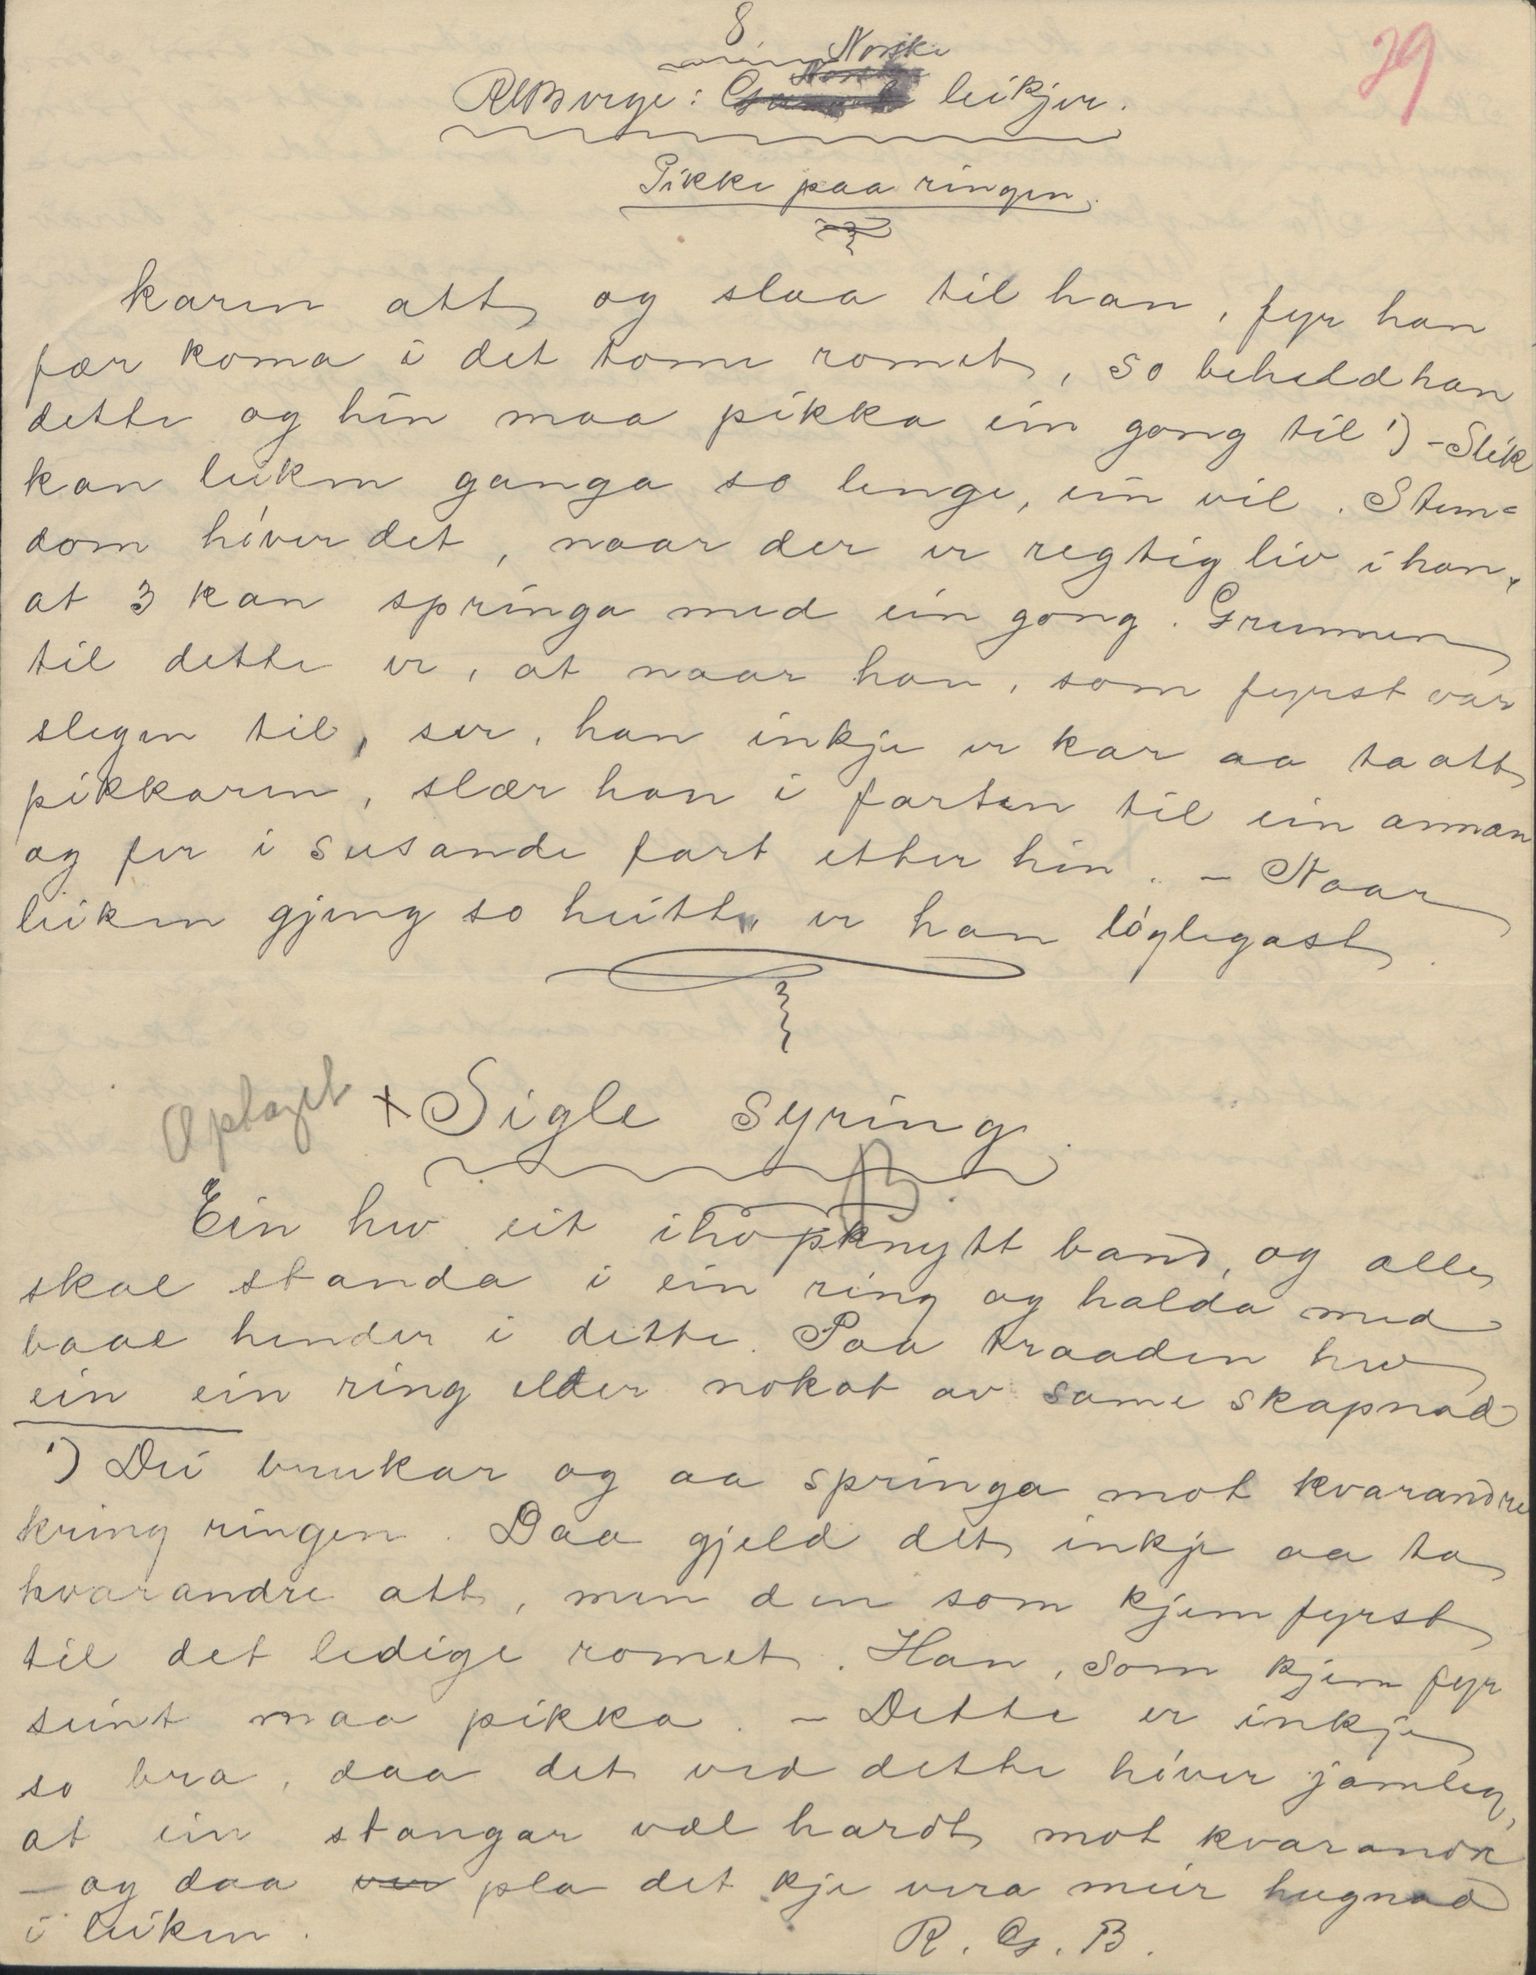 8
29
Norske
RGBerge: leikjer.
Pikke paa ringen.
karen att og slaa til han, fyr han
fær koma i det tome romet, so beheld han
dette og hin maa pikka ein gong til 1) - Slik
kan leiken ganga so lenge, ein vil. Stun=
dom höver det, naar der er regtig liv i han,
at 3 kan springa med ein gong. Grunnen
til dette er, at naar han, som fyrst var
slegen til, ser, han inkje er kar aa ta att
pikkaren, slær han i farten til ein annan
og fer i susande fart etter hin. - Naar
leiken gjeng so heitt er han löglegast.
Optaget
+ Sigle syring.
B
Ein hev eit ihopknytt band, og alle
skal standa i ein ring og halda med
baae hender i dette. Paa traaden hev
ein ein ring elder nokot av same skapnad
1) Dei brukar og aa springa mot kvarandre
kring ringen. Daa gjeld det inkje aa ta
kvarandre att, men den som kjem fyrst
til det ledige romet. Han, som kjem fyr
seint maa pikka. - Dette er inkje
so bra, daa det ved dette höver jamleg,
at ein stangar vel hardt mot kvarandre
- og daa ver pla det kje vera meir hugnad
i leiken.
R. G. B.